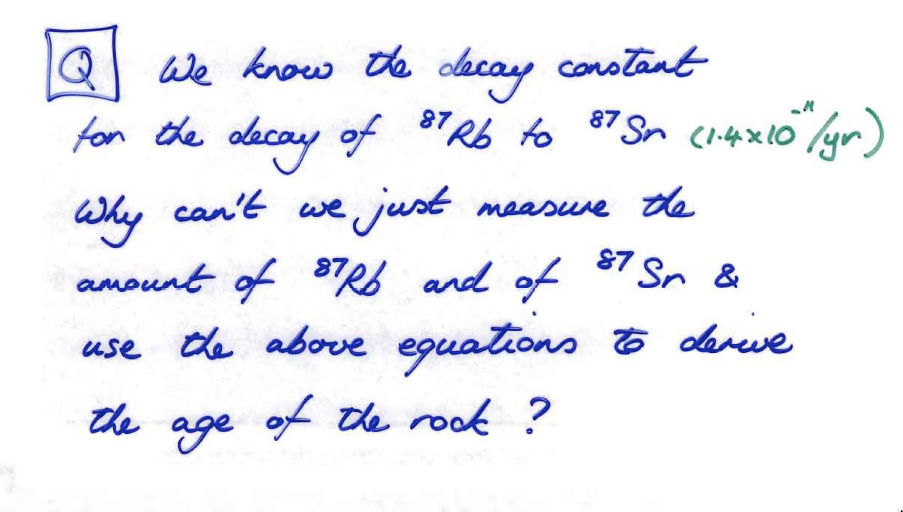 Q We know the decay constant
for the decay of ⁸⁷Rb to ⁸⁷Sr (1.4x10⁻¹¹/yr)
Why can't we just measure the
amount of ⁸⁷Rb and of ⁸⁷Sr &
use the above equations to derive
the age of the rock ?